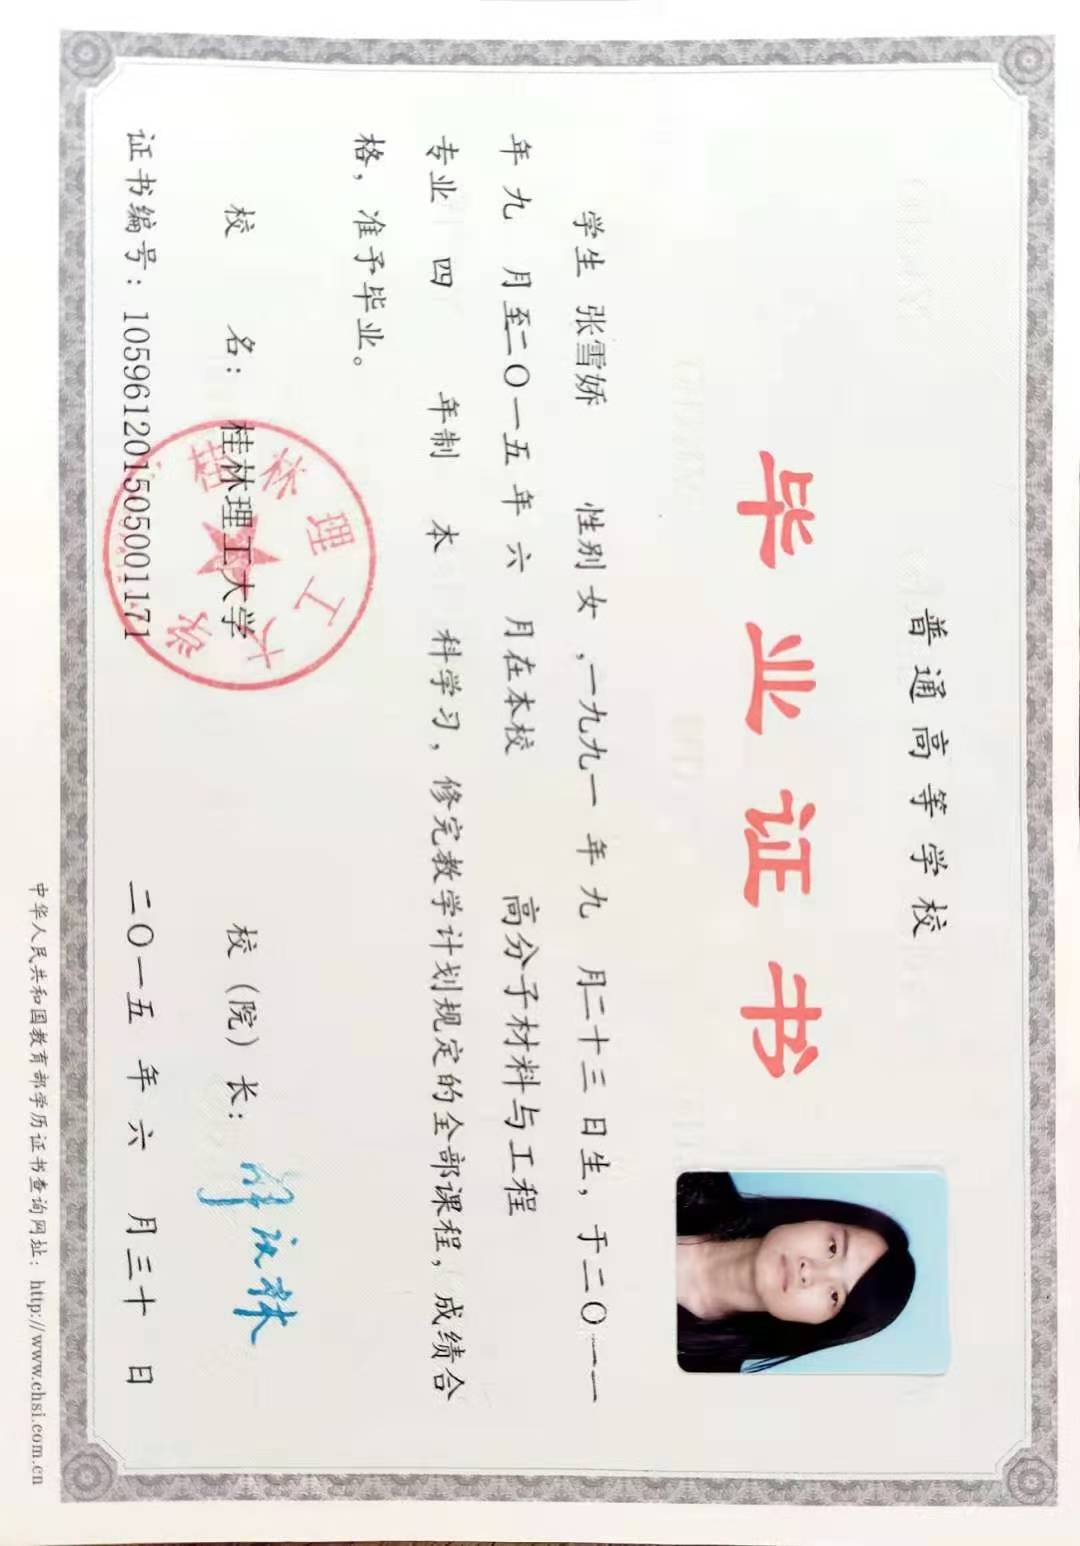 普通高等学校
毕业证书
学生 张雪娇 性别 女 ,一九九一 年 九 月二十三 日生，于二〇一一
年 九 月至二〇一五年 六 月在本校 高分子材料与工程
专业 四 年制 本 科学习，修完教学计划规定的全部课程，成绩合
格，准予毕业。
校 名： 桂林理工大学 校（院）长：
桂林理工大学
证书编号：105961201505001171 二〇一五 年 六 月三十 日
中华人民共和国教育部学历证书查询网址：http://www.chsi.com.cn